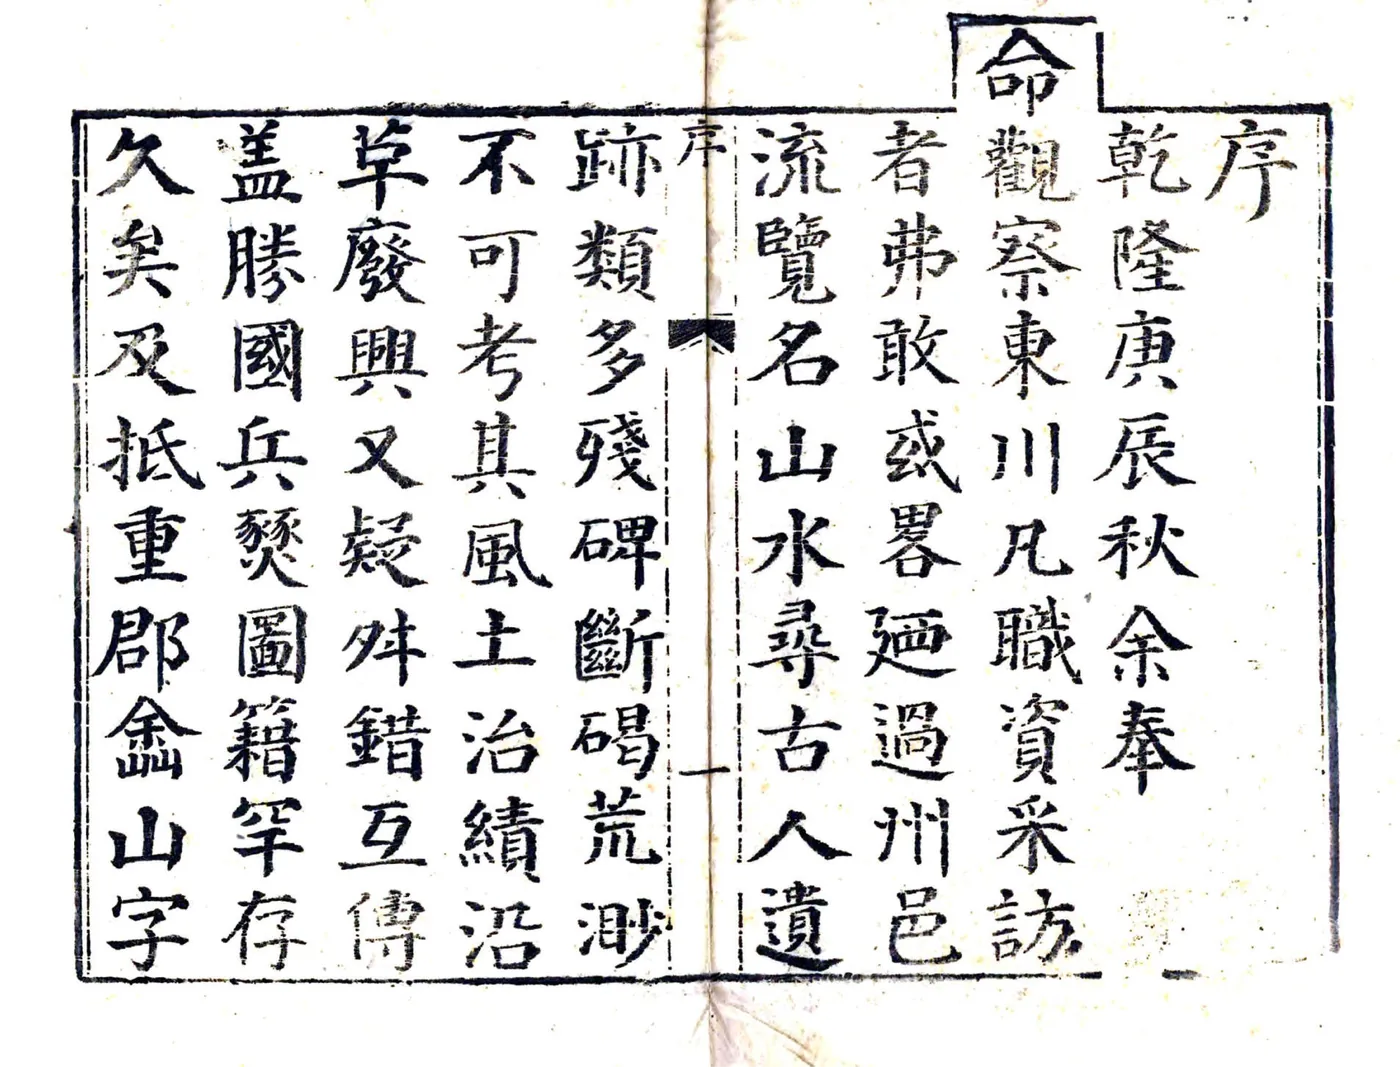 序
乾隆庚辰秋余奉
命觀察東川凡職資采訪
者弗敢或畧廼過州邑
流覽名山水尋古人遺
序
一
跡類多殘碑斷碣荒渺
不可考其風土治績沿
草廢興又疑舛錯互傳
盖勝國兵燹圖籍罕存
久矣及抵重郡嵞山字